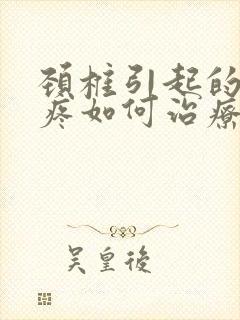 頸椎引起的
疼如何治療
吴皇後